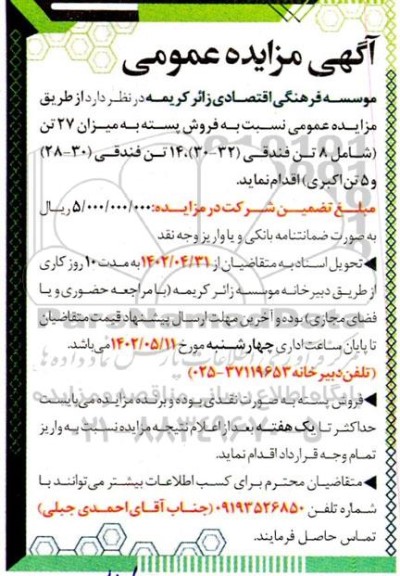 آگهی مزایده عمومی
موسسه فرهنگی اقتصادی زائر کریمه در نظر دارد از طریق
مزایده عمومی نسبت به فروش پسته به میزان ۲۷ تن
(شامل ۸ تن فندقی (۳۲-۳۰)، ۱۴ تن فندقی (۳۰-۲۸)
و ۵ تن اکبری) اقدام نماید.
مبلغ تضمین شرکت در مزایده: ۵/۰۰۰/۰۰۰/۰۰۰ ریال
به صورت ضمانتنامه بانکی و یا واریز وجه نقد
◀تحویل اسناد به متقاضیان از ۱۴۰۲/۰۴/۳۱ به مدت ۱۰ روز کاری
از طریق دبیرخانه موسسه زائر کریمه (با مراجعه حضوری و یا
فضای مجازی) بوده و آخرین مهلت ارسال پیشنهاد قیمت متقاضیان
تا پایان ساعت اداری چهارشنبه مورخ ۱۴۰۲/۰۵/۱۱ می‌باشد.
(تلفن دبیرخانه ۳۷۱۱۹۶۵۳-۰۲۵)
◀فروش پسته به صورت نقدی بوده و برنده مزایده می‌بایست
حداکثر تا یک هفته بعد از اعلام نتیجه مزایده نسبت به واریز
تمام وجه قرارداد اقدام نماید.
◀متقاضیان محترم برای کسب اطلاعات بیشتر می‌توانند با
شماره تلفن ۰۹۱۹۳۵۲۶۸۵۰ (جناب آقای احمدی جبلی)
تماس حاصل فرمایند.